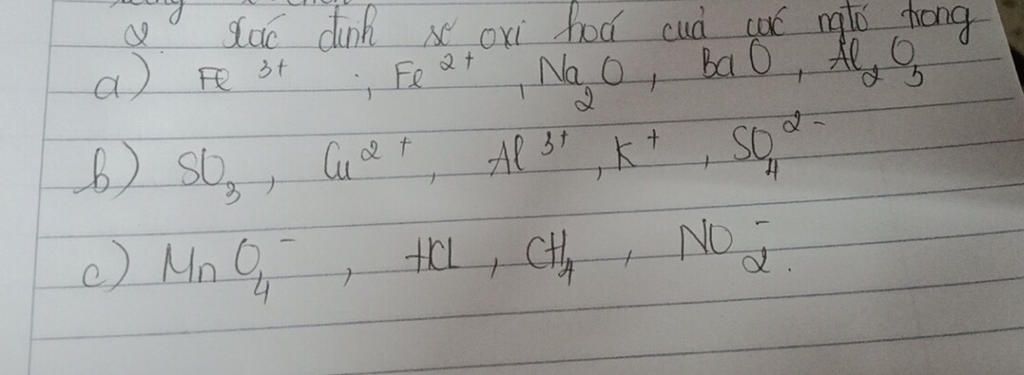 2. Xác định số oxi hoá cuả các ngtố trong
a) Fe³⁺ ; Fe²⁺, Na₂O, BaO, Al₂O₃
b) SO₃, Cu²⁺, Al³⁺, K⁺, SO₄²⁻
c) MnO₄⁻, HCl, CH₄, NO₂⁻.